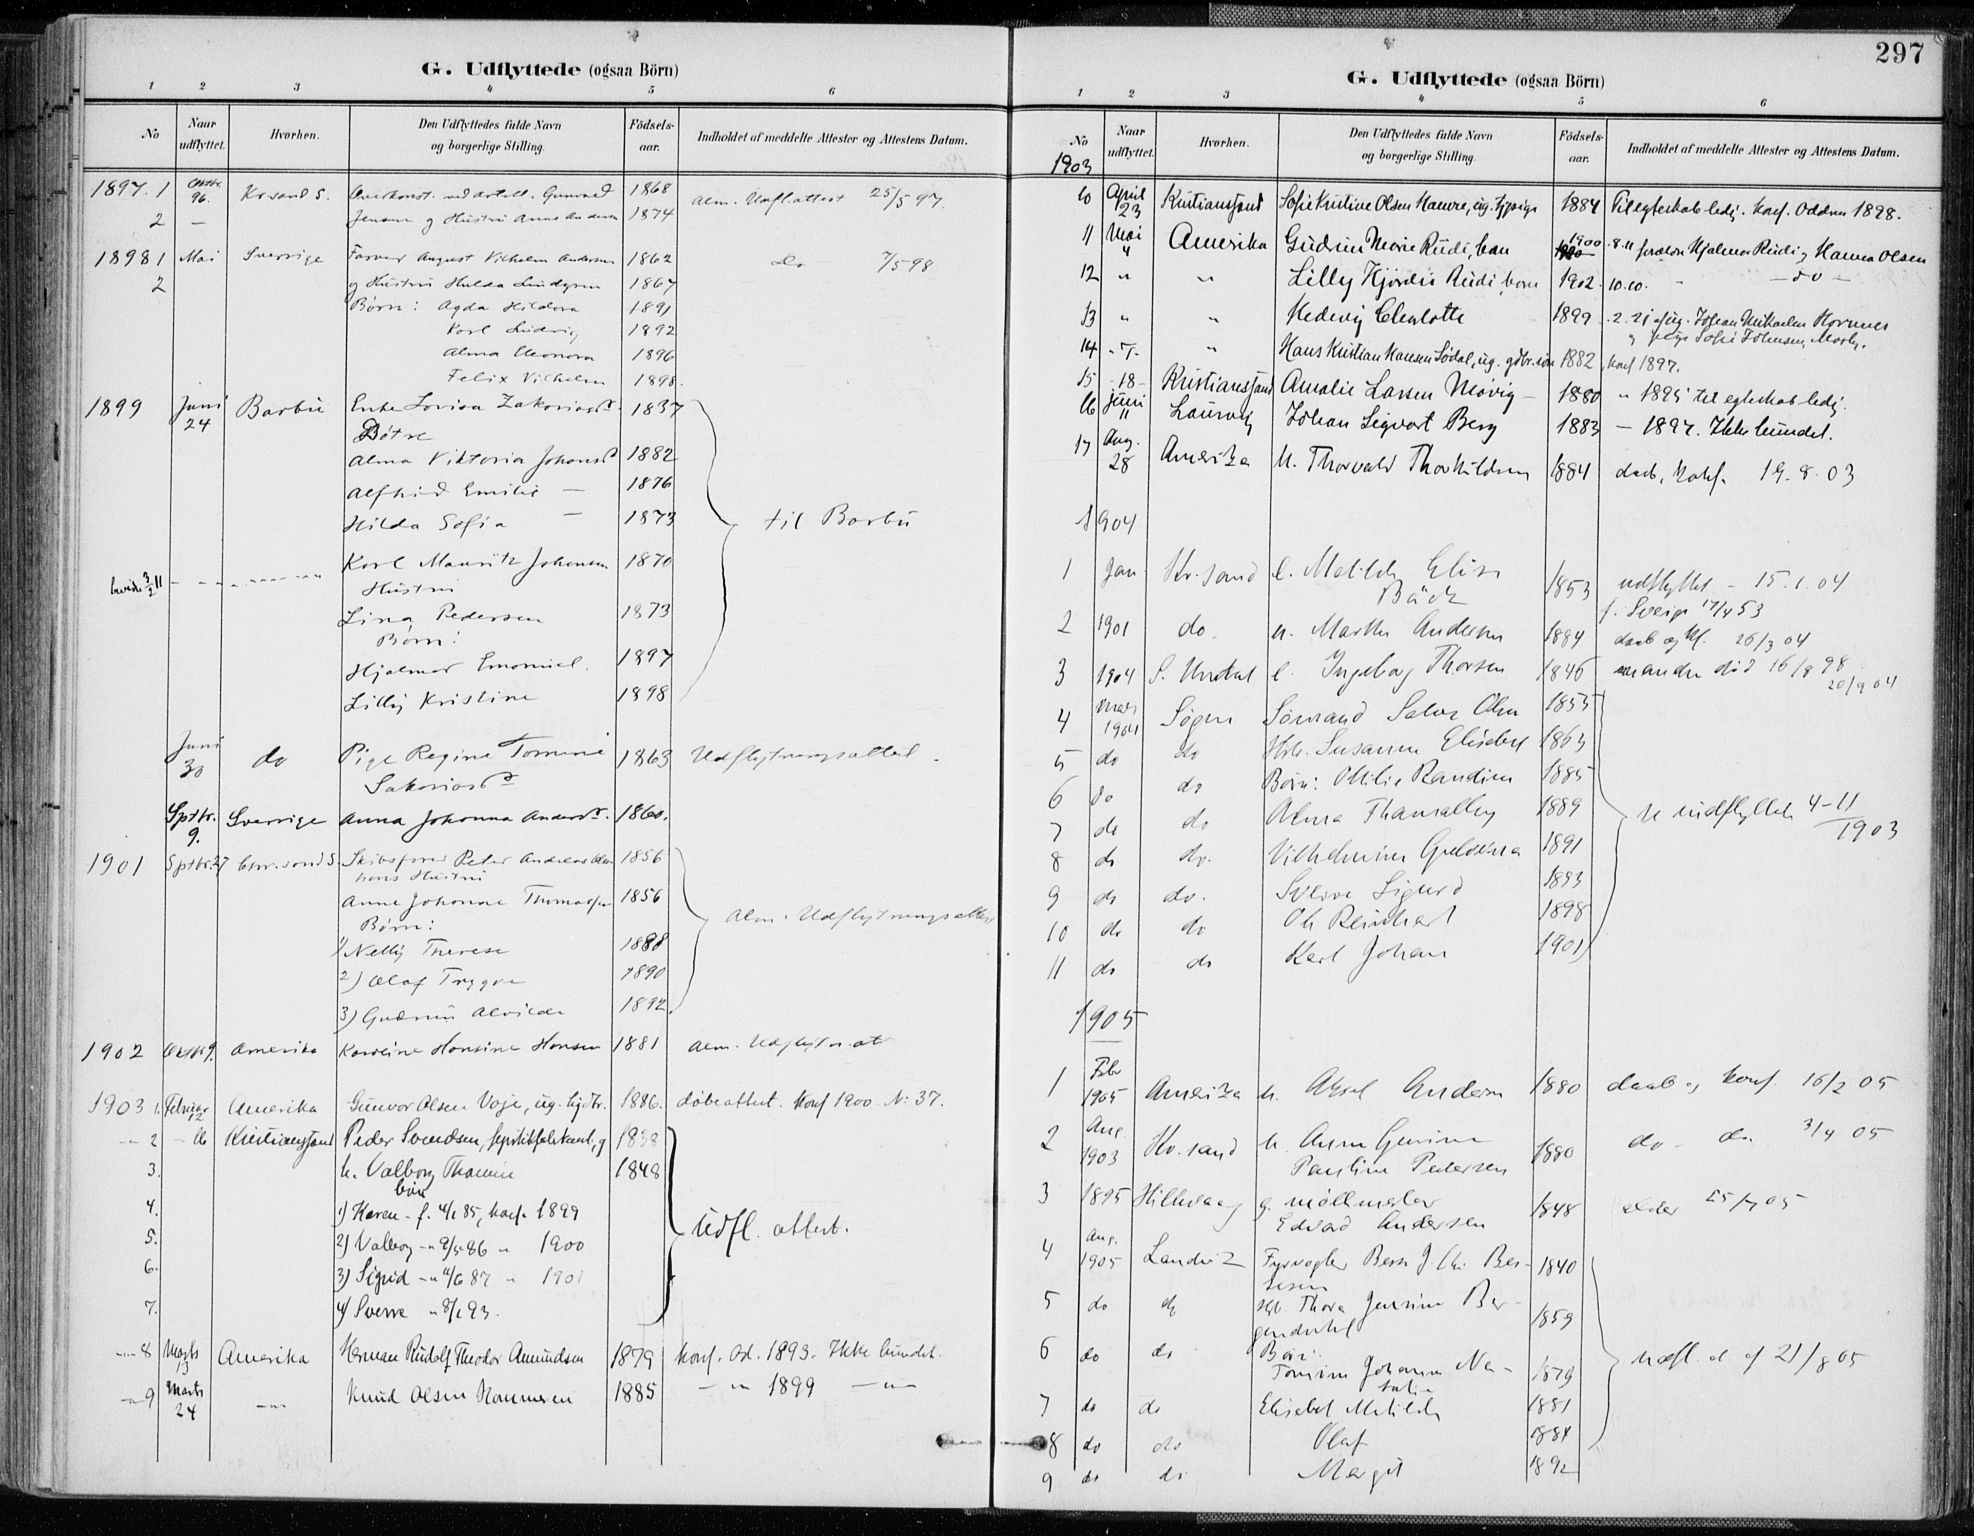 G. Udflyttede (ogsaa Börn)
1 2 3 4 5 6
No Naar udflyttet. Hvorhen. Den Udflyttedes fulde Navn og borgerlige Stilling. Födsels-aar. Indholdet af meddelte Attester og Attestens Datum.
1897. 1 Oktbr. 96. Kr.sand S. 1868 Alm. Udfl.attest 25/5 97.
2 — Jensen og Hustru Anna 1874
1898 1 Mai Sverrige Farver August Vilhelm Andersen 1862 do 7/5 98
2 og Hustru Hulda Lindgren 1867
Børn: Agda Hildora 1891
Karl Ludvig 1892
Alma Eleonora 1896
Felix Vilhelm 1898.
1899 Juni 24 Barbu Enke Lovisa Zakariasd. 1837
Døtre
Alma Viktoria Johansd 1882
Alfhild Emilie — 1876
Hilda Sofia — 1873 til Barbu
Karl Mauritz Johansen 1870
Hustru
Lina Pedersen 1873
Børn:
Hjalmar Emanuel. 1897
Lilly Kristine 1898
Juni 30 do Pige Regine Tomine 1863 Udflytningsattest.
Sakariasd
Sptbr. 9. Sverrige Anna Johanna Andersd. 1860.
1901 Sptbr. 27 Chr.sand S Skibsfører Peter Andreas Olsen 1856
hans Hustru
Anne Johanne Thomas 1856
Børn: Alm. Udflytningsattest
1) Nelly Therese 1888
2) Olaf Trygve 1890
3) Gudrun Alvilde 1892.
1902 Oktbr 9. Amerika Karoline Hansine Hansen 1881 Alm. Udflytn. at
1903 1. Februar 12 Amerika Gunvor Olsen Voje, ug. 1886. döbeattest. Konf 1900. No 37.
2 — 16 Kristianssand Peder Svendsen, og 1838
3. h. Valborg Thomine 1848
børn
4. 1) Karen - f. 4/1 85, konf. 1899
5. 2) Valborg - " 9/5 86 " 1900 Udfl. attest.
6. 3) Sigrid - " 11/6 87 " 1901
7. 4) Sverre " 8/1 93.
8 Marts 13 Amerika Herman Rudolf Theodor Amundsen 1879 Konf. Od. 1893. Ikke bundet.
9 Marts 24 —"— Knud Olsen 1885 —"— 1899 —"—
297
G. Udflyttede (ogsaa Börn)
1 2 3 4 5 6
No Naar udflyttet. Hvorhen. Den Udflyttedes fulde Navn og borgerlige Stilling. Födsels-aar. Indholdet af meddelte Attester og Attestens Datum.
1903
10 April 23 Kristianssand Sofie Kristine Olsen ug. 1884 Til egteskab ledig. Konf. Oddern 1898.
11 Mai " Amerika Gudrun Marie Rudi, barn 1900 8.11 foreldre Hjalmar Rudi og Hanna Olsen
12 " " Lilly Hjørdis Rudi, barn 1902. 10.10. " — do —
13 " " Hedevig Charlotte 1899 .2.21 Johan Mikaelen Hornnes
og pige Sofie Johnsen, Mosby.
14 " " Hans Kristian Hansen Sødal, ug. gdbr.søn 1882, konf 1897.
15 - 18 - Kristianssand Amalie Larsen Møvig — 1880 " 1895 til egteskab ledig.
16 Juni 11 Laurvig Johan Sigvart Berg 1883 — 1897. Ikke bundet.
17 Aug. 28 Amerika U. Thorvald Thorkildsen 1884 daab, Konf. 19.8.03
1904
1 Jan Kr.sand e. Matilde Elise 1853 udflyttet — 15.1.04
Bäck f. Sverige 17/4 53
2 1901 do. u. Marthe Andersen 1884 daab og kf. 26/3 04
3 1904 S. Undal e. Ingeborg Thorsen 1846 manden död 16/8 98
20/9 04
4 1904 Søgne Sømand Salve Olsen 1853
5 do do Hstr. Susanne Elisabeth 1863
6 do do Børn: Otilie Randine 1885
7 do do 1889 udflyttet 4-11 1903
8 do do. Vilhelmine 1891
9 do do. Sverre Sigurd 1893
10 do do Ole Reinhart 1898
11 do do Karl Johan 1901
1905
1 Febr 1905 Amerika u. Aksel Andersen 1880 daab og konf. 16/2 05
2 Aug 1903 Kr.sand u. Anna 1880 do - do. 3/4 05
Pauline Pedersen
3 1895 g. møllemester 1848 25/7 05
Edvard Andersen
4 Aug. 1905 Landvik Fyrvogter 1840
5 do do Hstr Thora Jensine 1859
6 do do Børn:
Tomine Johanne Na- 1879 Udfl. at af 21/8 05
talie
7 do do Elisabet Matilde 1881
8 do do Olaf 1884
9 do do Margit 1892